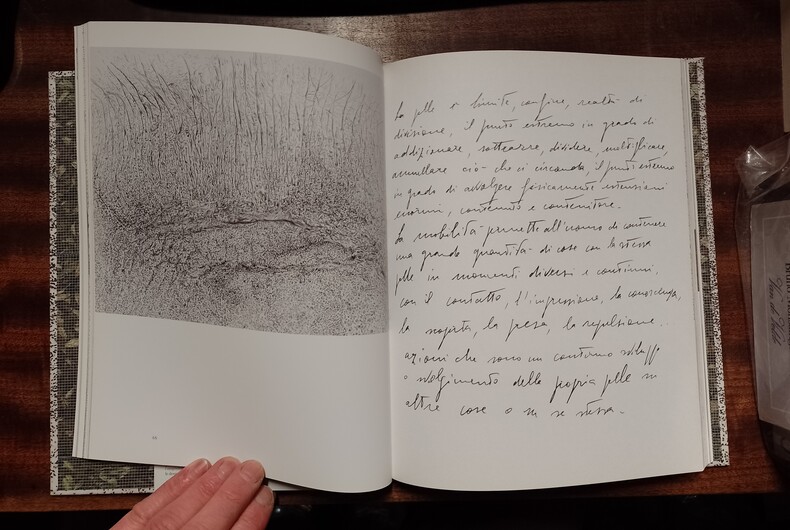 La pelle è limite, confine, realtà di
divisione, il punto estremo in grado di
addizionare, sottrarre, dividere, moltiplicare,
annullare ciò che ci circonda, il punto estremo
in grado di avvolgere fisicamente estensioni
enormi, contenuto e contenitore.
La mobilità permette all'uomo di contenere
una grande quantità di cose con la stessa
pelle in momenti diversi e continui,
con il contatto, l'impressione, la conoscenza,
la scoperta, la presa, la repulsione..
azioni che sono un continuo sviluppo
o svolgimento della propria pelle su
altre cose o su se stessa.